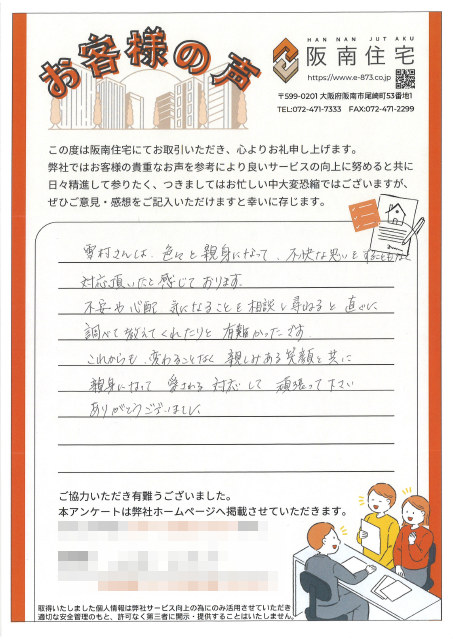 お客様の声
HAN NAN JUTAKU
阪南住宅
https://www.e-873.co.jp
〒599-0201 大阪府阪南市尾崎町53番地1
TEL:072-471-7333 FAX:072-471-2299
この度は阪南住宅にてお取引いただき、心よりお礼申し上げます。
弊社ではお客様の貴重なお声を参考により良いサービスの向上に努めると共に
日々精進して参りたく、つきましてはお忙しい中大変恐縮ではございますが、
ぜひご意見・感想をご記入いただけますと幸いに存じます。
雪村さんは、色々と親身になって、不快な思いをすることなく
対応頂いたと感じております。
不安や心配 気になることを相談し尋ねると 直ぐに
調べて教えてくれたりと 有難かったです
これからも、変わることなく 親しみある笑顔と共に
親身になって 愛される 対応して 頑張って下さい
ありがとうございました。
ご協力いただき有難うございました。
本アンケートは弊社ホームページへ掲載させていただきます。
取得いたしました個人情報は弊社サービス向上の為にのみ活用させていただき
適切な安全管理のもと、許可なく第三者に開示・提供することはいたしません。